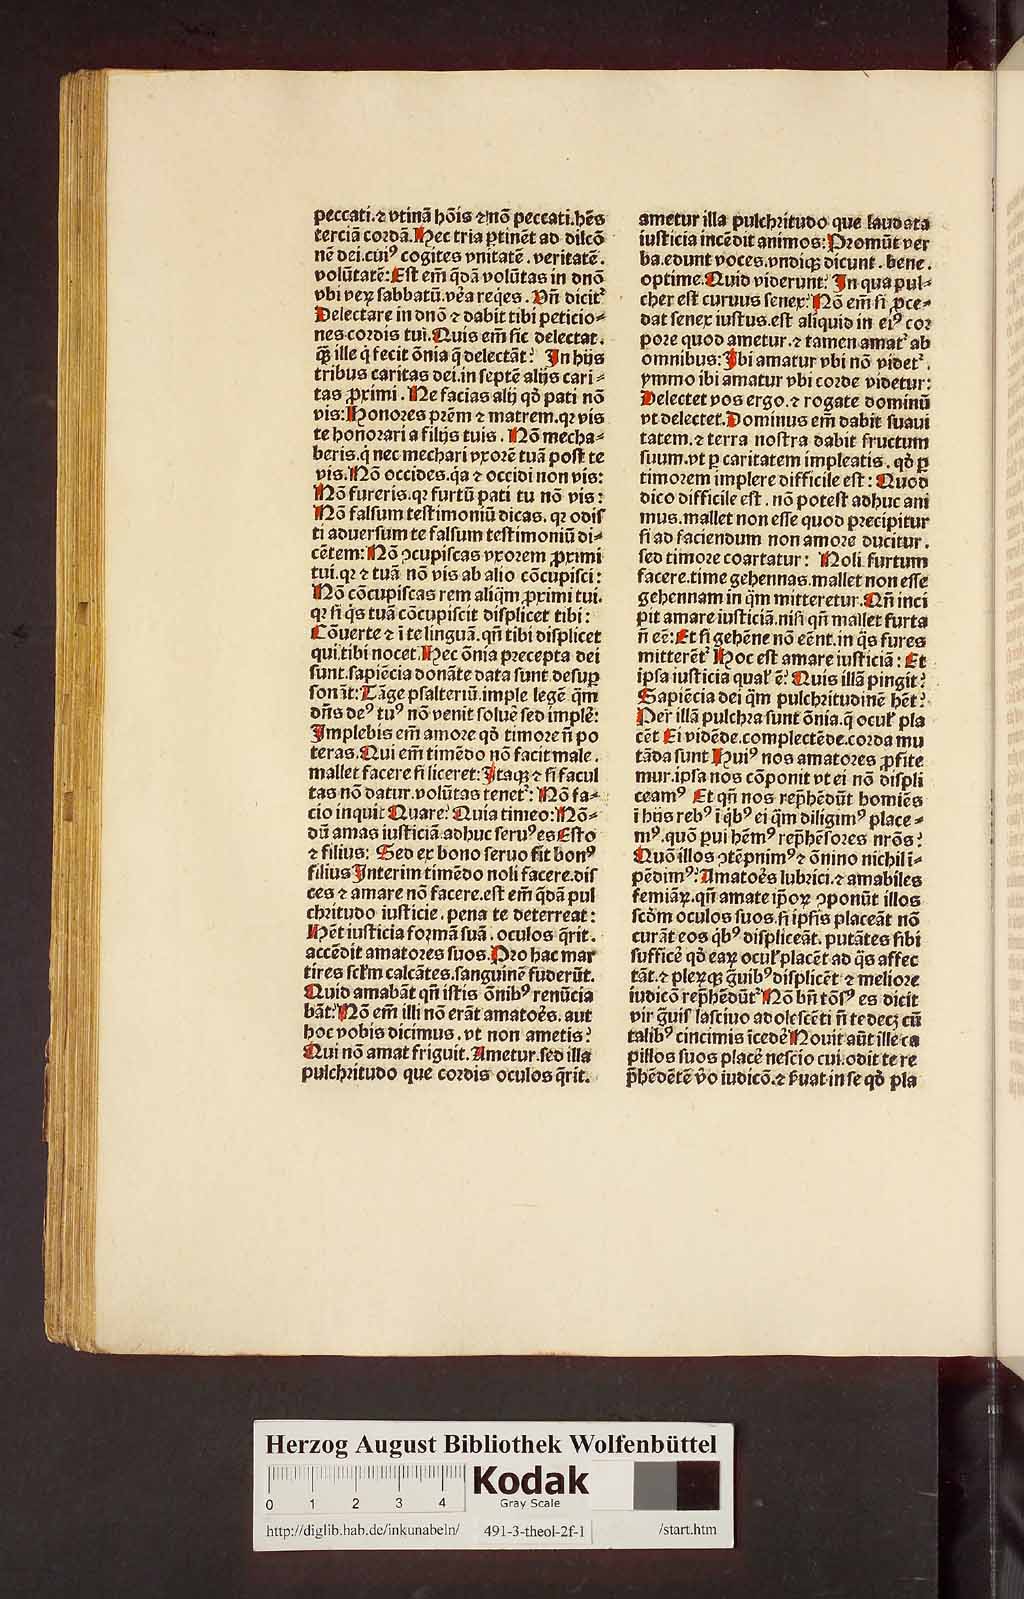 peccati.⁊ vtinā hōis ⁊ nō peccati.hēs
terciā cordā. Hec tria ꝑtinēt ad dilcō
nē dei.cuiꝰ cogites vnitatē. veritatē.
volūtatē: Est em̄ q̄dā volūtas in dnō
vbi veꝝ sabbatū.vēa reqes. Vn̄ dicit᷑
Delectare in dnō ⁊ dabit tibi peticio⸗
nes cordis tui. Quis em̄ sic delectat.
q̄ꝫ ille q̇ fecit ōnia q̄ delectāt? In hijs
tribus caritas dei.in septē alijs cari⸗
tas ꝓximi. Ne facias alij qd̄ pati nō
vis: Honores prēm ⁊ matrem.qꝛ vis
te honorari a filijs tuis. Nō mecha⸗
beris.q̇ nec mechari vxorē tuā post te
vis. Nō occides.q̇a ⁊ occidi non vis:
Nō fureris.qꝛ furtū pati tu nō vis:
Nō falsum testimoniū dicas. qꝛ odis
ti aduersum te falsum testimoniū di⸗
cētem: Nō ꝯcupiscas vxorem ꝓximi
tui.qꝛ ⁊ tuā nō vis ab alio cōcupisci:
Nō cōcupiscas rem aliqm̄ ꝓximi tui.
qꝛ si q̇s tuā cōcupiscit displicet tibi:
Cōuerte ⁊ ī te linguā. qn̄ tibi displicet
qui tibi nocet. Hec ōnia precepta dei
sunt.sapiēcia donāte data sunt desuꝑ
sonāt: Tāge psalteriū.imple legē q̄m
dn̄s deꝰ tuꝰ nō venit soluē sed implē:
Implebis em̄ amore qd̄ timore n̄ po
teras. Qui em̄ timēdo nō facit male.
mallet facere si liceret: Itaqꝫ ⁊ si facul
tas nō datur.volūtas tenet᷑: Nō fa⸗
cio inquit Quare? Quia timeo: Nō⸗
dū amas iusticiā adhuc seruꝰ es Esto
⁊ filius: Sed ex bono seruo fit bonꝰ
filius Interim timēdo noli facere.dis
ces ⁊ amare nō facere.est em̄ q̄dā pul
chritudo iusticie. pena te deterreat:
Hēt iusticia formā suā. oculos q̄rit.
accēdit amatores suos. Pro hac mar
tires sclm̄ calcātes.sanguinē fuderūt.
Quid amabāt qn̄ istis ōnibꝰ renūcia
bāt? Nō em̄ illi nō erāt amatoēs. aut
hoc vobis dicimus. vt non ametis?
Qui nō amat friguit. Ametur.sed illa
pulchritudo que cordis oculos q̄rit.
ametur illa pulchritudo que laudata
iusticia incēdit animos: Promūt ver
ba.edunt voces.vndiqꝫ dicunt. bene.
optime. Quid viderunt? In qua pul⸗
cher est curuus senex? Nō em̄ si ꝓce⸗
dat senex iustus.est aliquid in eiꝰ cor
pore quod ametur.⁊ tamen amat᷑ ab
omnibus: Ibi amatur vbi nō videt᷑.
ymmo ibi amatur vbi corde videtur:
Delectet vos ergo.⁊ rogate dominū
vt delectet. Dominus em̄ dabit suaui
tatem.⁊ terra nostra dabit fructum
suum.vt ꝑ caritatem impleatis. qd̄ ꝑ
timorem implere difficile est: Quod
dico difficile est. nō potest adhuc ani
mus.mallet non esse quod precipitur
si ad faciendum non amore ducitur.
sed timore coartatur: Noli furtum
facere.time gehennas.mallet non esse
gehennam in q̄m mitteretur. Qn̄ inci
pit amare iusticiā.nisi qn̄ mallet furta
n̄ eē: Et si gehēne nō eēnt.in q̄s fures
mitterēt᷑ Hoc est amare iusticiā: Et
ipsa iusticia qual' ē? Quis illā pingit?
Sapiēcia dei q̄m pulchritudinē hēt?
Per illā pulchra sunt ōnia.q̄ ocul' pla
cēt Ei vidēde.complectēde.corda mu
tāda sunt Huiꝰ nos amatores ꝓfite
mur.ipsa nos cōponit vt ei nō displi
ceamꝰ Et qn̄ nos rephēdūt homiēs
ī hijs rebꝰ ī q̇bꝰ ei q̄m diligimꝰ place⸗
mꝰ.quō ꝑui hēmꝰ rephēsores nrōs?
Quō illos ꝯtēpnimꝰ ⁊ ōnino nichil ī⸗
pēdimꝰ? Amatoēs lubrici.⁊ amabiles
femiāꝝ.qn̄ amate ip̄oꝝ ꝯponūt illos
scd̄m oculos suos.si ipsis placeāt nō
curāt eos q̇bꝰ displiceāt. putātes sibi
sufficē qd̄ eaꝝ ocul' placēt ad q̄s affec
tāt.⁊ pleꝝqꝫ ḡuibꝰ displicēt ⁊ meliore
iudicō rephēdūt᷑ Nō bn̄ tōsꝰ es dicit
vir ḡuis lasciuo adolescēti n̄ te decꝫ cū
talibꝰ cincimis īcedē Nouit aūt ille ca
pillos suos placē nescio cui.odit te re
phēdētē vō iudicō.⁊ ẜuat in se qd̄ pla
Herzog August Bibliothek Wolfenbüttel
0 1 2 3 4
Kodak
Gray Scale
http://diglib.hab.de/inkunabeln/ 491-3-theol-2f-1 /start.htm